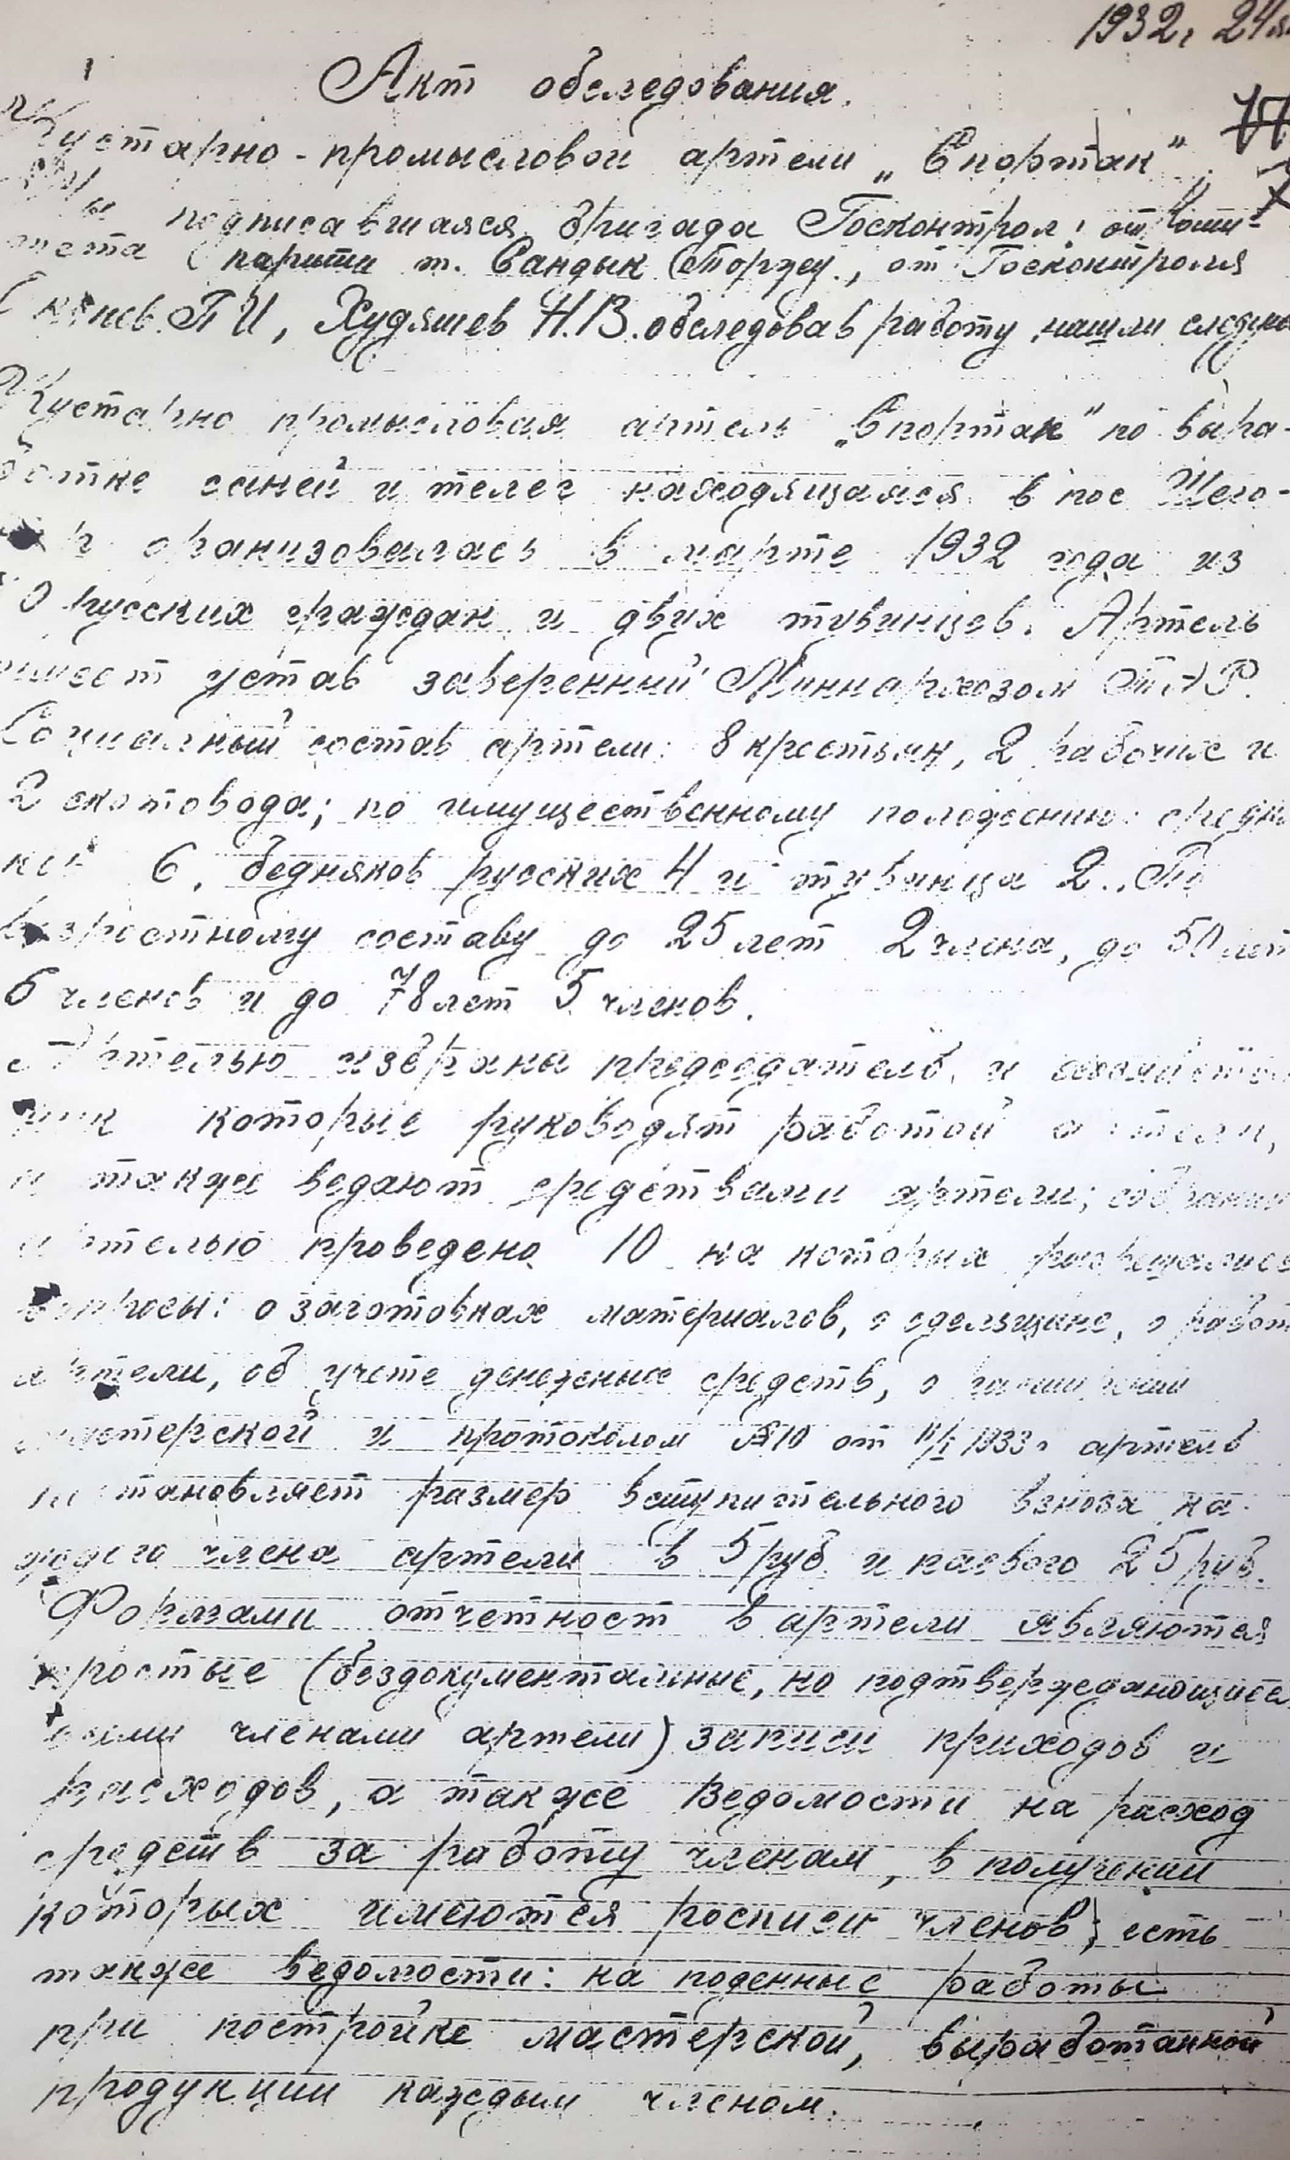 1932г 24
Акт обследования.
Кустарно-промысловой артели „Спортак"
Мы подписавшаяся бригада Госконтрол: от Коми-
тета партии т. Сандык , от Госконтроля
П И, Худяшев Н.В. обследовав работу нашли следую
Кустарно промысловая артель „Спортак" по выра-
ботке саней и телег находящаяся в пос
организовалась в марте 1932 года из
10 русских граждан и двух тувинцев. Артель
имеет устав заверенный Миннархозом ТАР.
Социалный состав артели: 8 крестьян, 2 рабочих и
2 скотовода; по имущественному положению: средня
ков 6, бедняков русских 4 и тувинца 2. По
возростному составу до 25 лет 2 члена, до 50 лет
5 членов и до 78 лет 5 членов.
Артелью избраны председатель и
которые руководят работой артели,
и также ведают средствами артели; собрании
артелью проведено 10 на которых разрешались
вопросы: о заготовках материалов, о сдельщине, о работ
артели, об учете денежных средств, о
мастерской и протоколом №10 от 11/I 1933г артель
постановляет размер вступительного взноса ка-
ждого члена артели в 5 руб и паевого 25 руб.
Формами отчетност в артели являются
простые (бездокументалные, но подтверждающиеся
всеми членами артели) записи приходов и
расходов, а также ведомости на расход
средств за работу членам, в получении
которых имеются росписи членов; есть
также ведомости: на поденные работы
при постройке мастерской, выработанной
продукции каждым членом.